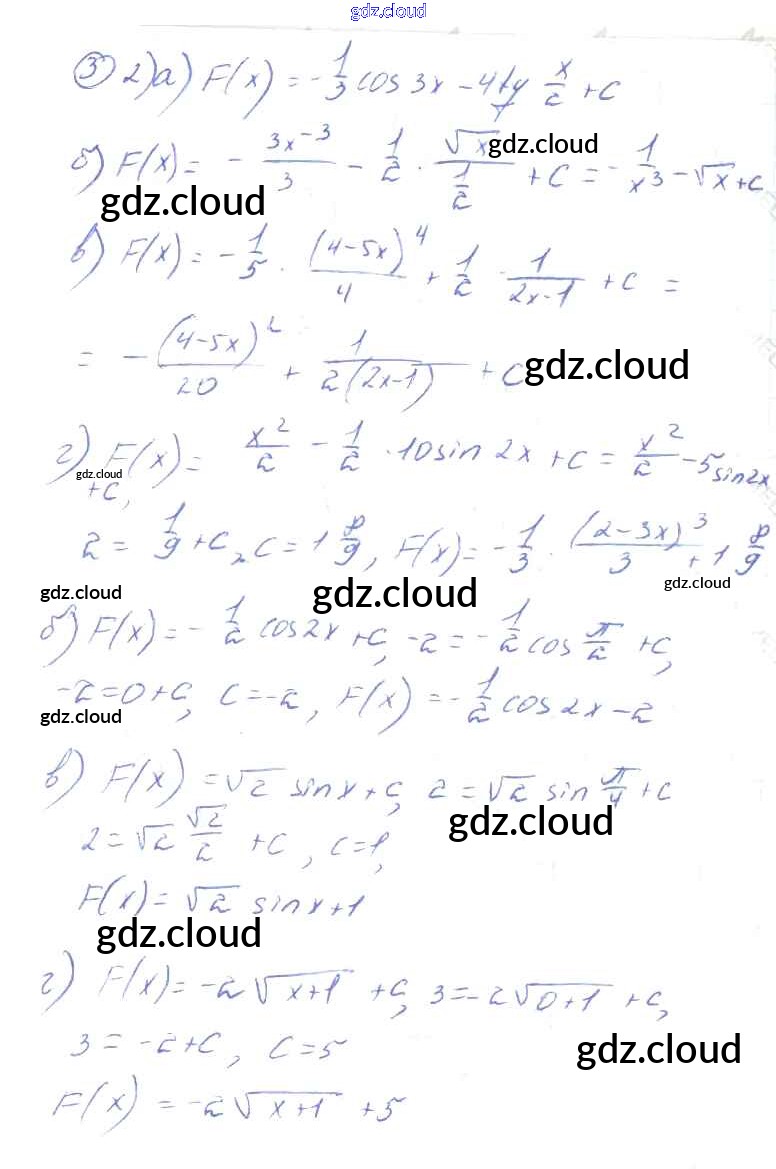 gdz.cloud
③ 2) а) F(x) = -1/3 cos 3x - 4tg x/2 + C
б) F(x) = - 3x⁻³/3 - 1/2 · √x/(1/2) + C = -1/x³ - √x + C
gdz.cloud
gdz.cloud
в) F(x) = -1/5 · (4-5x)⁴/4 + 1/2 · 1/(2x-1) + C =
= - (4-5x)²/20 + 1/(2(2x-1)) + C
gdz.cloud
г) F(x) = x²/2 - 1/2 · 10 sin 2x + C = x²/2 - 5 sin 2x
gdz.cloud
+ C,
2 = 1/9 + C, C = 1 8/9, F(x) = -1/3 · (2-3x)³/3 + 1 8/9
gdz.cloud
gdz.cloud
gdz.cloud
б) F(x) = -1/2 cos 2x + C, -2 = -1/2 cos π/2 + C,
-2 = 0 + C, C = -2, F(x) = -1/2 cos 2x - 2
gdz.cloud
в) F(x) = √2 sin x + C, 2 = √2 sin π/4 + C
gdz.cloud
2 = √2 √2/2 + C, C = 1,
F(x) = √2 sin x + 1
gdz.cloud
г) F(x) = -2√(x+1) + C, 3 = -2√(0+1) + C,
3 = -2 + C, C = 5
gdz.cloud
F(x) = -2√(x+1) + 5